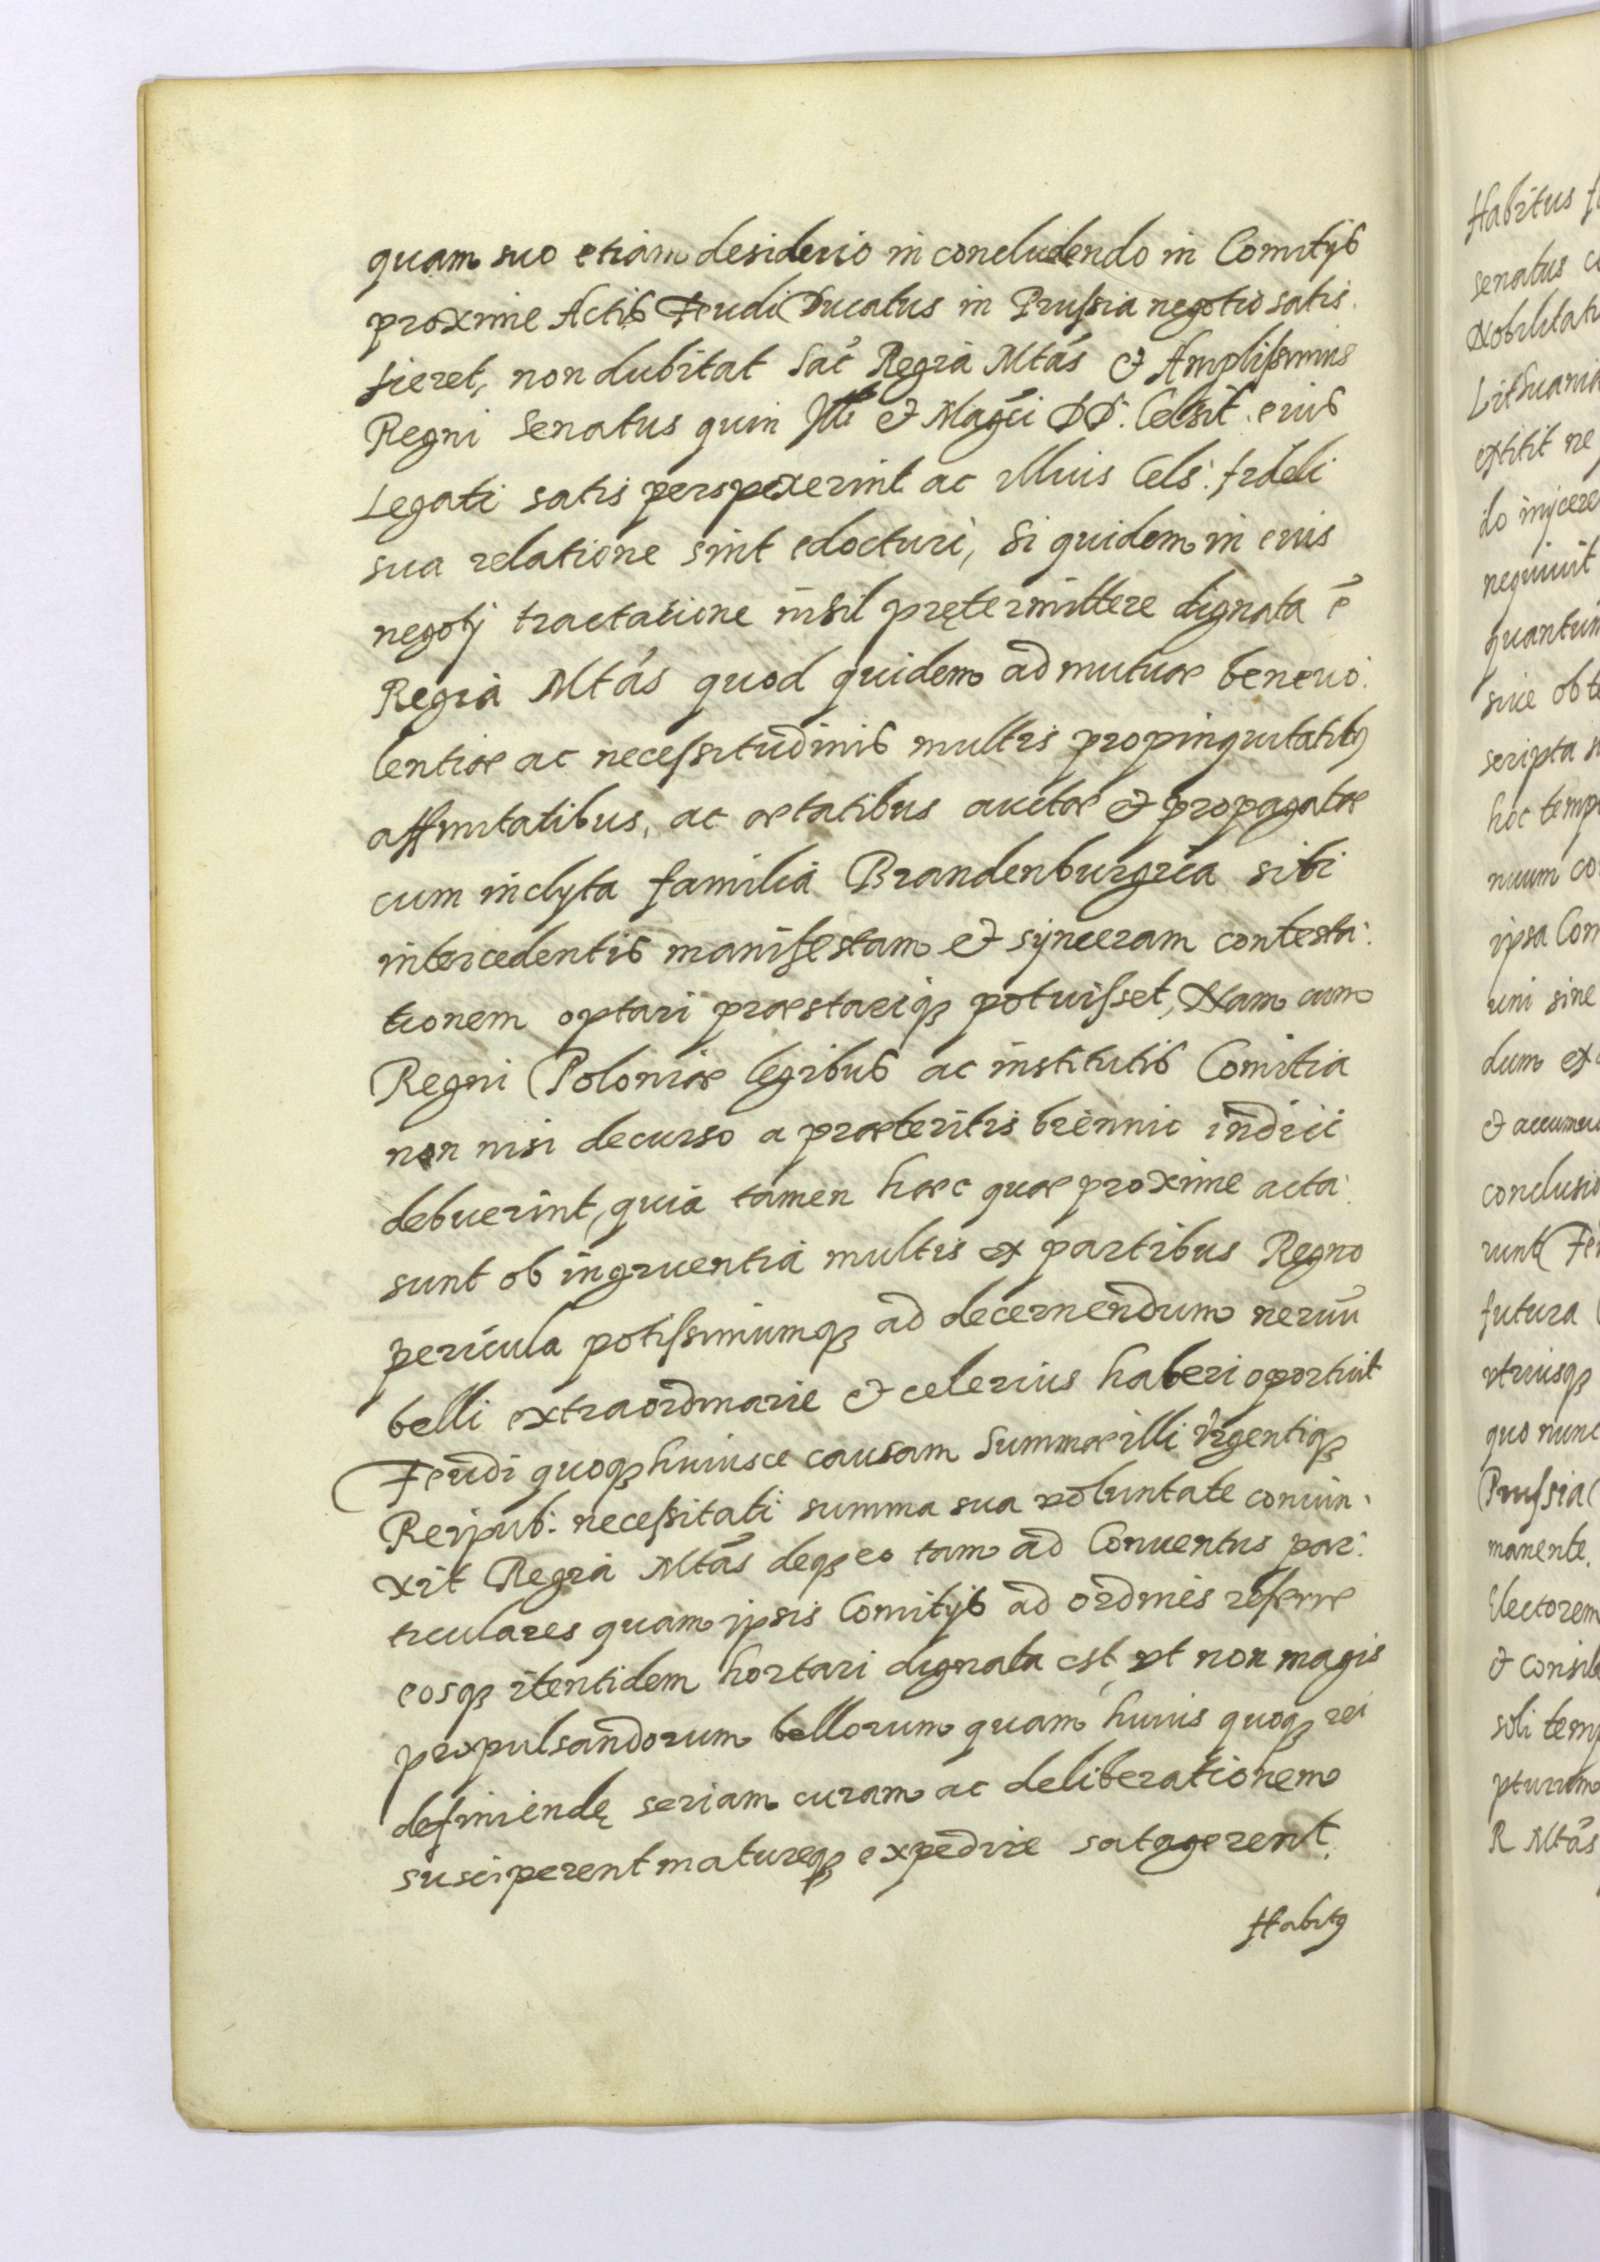 quam suo etiam desiderio in concludendo in Comitijs
proxime Actis Feudi Ducatus in Prussia negotio satis
fieret, non dubitat Sac Regia Mtas & Amplissimus
Regni Senatus quin Illi & Magci DD. Celsit. eius
Legati satis perspexerint ac illius Cels: fideli
sua relatione sint edocturi, Si quidem in euis
negotij tractatione nihil prętermittere dignata ē
Regia Mtas quod quidem ad mutuae beneuo:
lentiae ac necessitudinis multis propinquitatibq
affinitatibus, ac aetatibus auctae & propagatae
cum inclyta familia Brandenburgica sibi
intercedentis manifestam & synceram contesta:
tionem optari praestariq; potuisset, Nam cum
Regni Poloniae legibus ac institutis Comitia
non nisi decurso a praeteritis biennio indici
debuerint, quia tamen haec quae proxime acta
sunt ob ingruentia multis ex partibus Regno
pericula potissimumq; ad decernendum neruū
belli extraordinarie & celerius haberi oportuit
Feudi quoq; huiusce causam Summae illi Vrgentiq;
Reipub: necessitati summa sua voluntate coniun:
xit Regia Mtas deq; eo tam ad Conuentus par:
ticulares quam ipsis Comitijs ad ordines referre
eosq; itentidem hortari dignata est, vt non magis
propulsandorum bellorum quam huius quoq; rei
definiendę seriam curam ac deliberationem
susciperent matureq; expedire satagerent.
Habitq
Habitus
senatus
Nobilitati
extitit ne
do injicere
nequiuit
quantum
siue
scripta
hoc
nuum
ipsa
uni sine
dum
&
conclusio
runt
futura
vtriusq;
quo nunc
Prussia
manente.
Electorem
&
soli
R Mtas